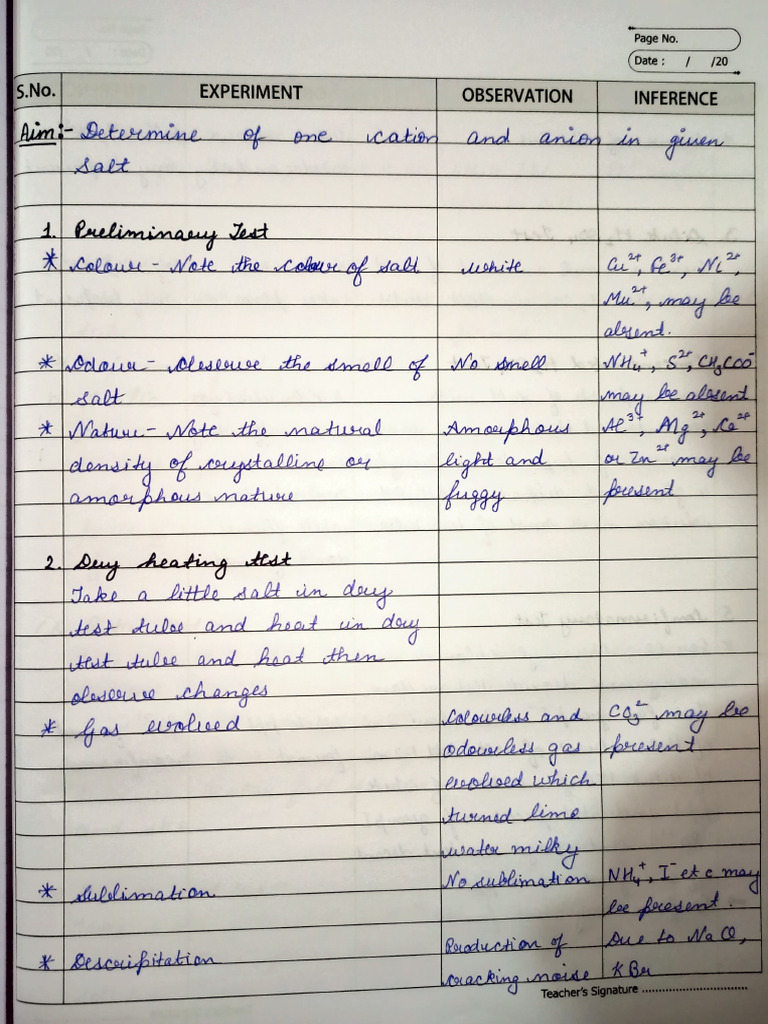 Page No.
Date : / /20
S.No. EXPERIMENT OBSERVATION INFERENCE
Aim:- Determine of one cation and anion in given
salt
1. Preliminary Test
* Colour - Note the colour of salt white Cu²⁺, Fe³⁺, Ni²⁺,
Mu²⁺, may be
absent.
* Odour - Observe the smell of No smell NH₄⁺, S²⁻, CH₃COO⁻
salt may be absent
* Nature - Note the natural Amorphous Al³⁺, Mg²⁺, Ca²⁺
density of crystalline or light and or Zn²⁺ may be
amorphous nature fuggy present
2. Dry heating test
Take a little salt in dry
test tube and heat in dry
test tube and heat then
observe changes
* Gas evolved Colourless and CO₃²⁻ may be
odourless gas present
evolved which
turned lime
water milky
* Sublimation No sublimation NH₄⁺, I⁻ etc may
be present.
* Descripitation Production of Due to NaCl,
cracking noise KBr
Teacher's Signature ................................